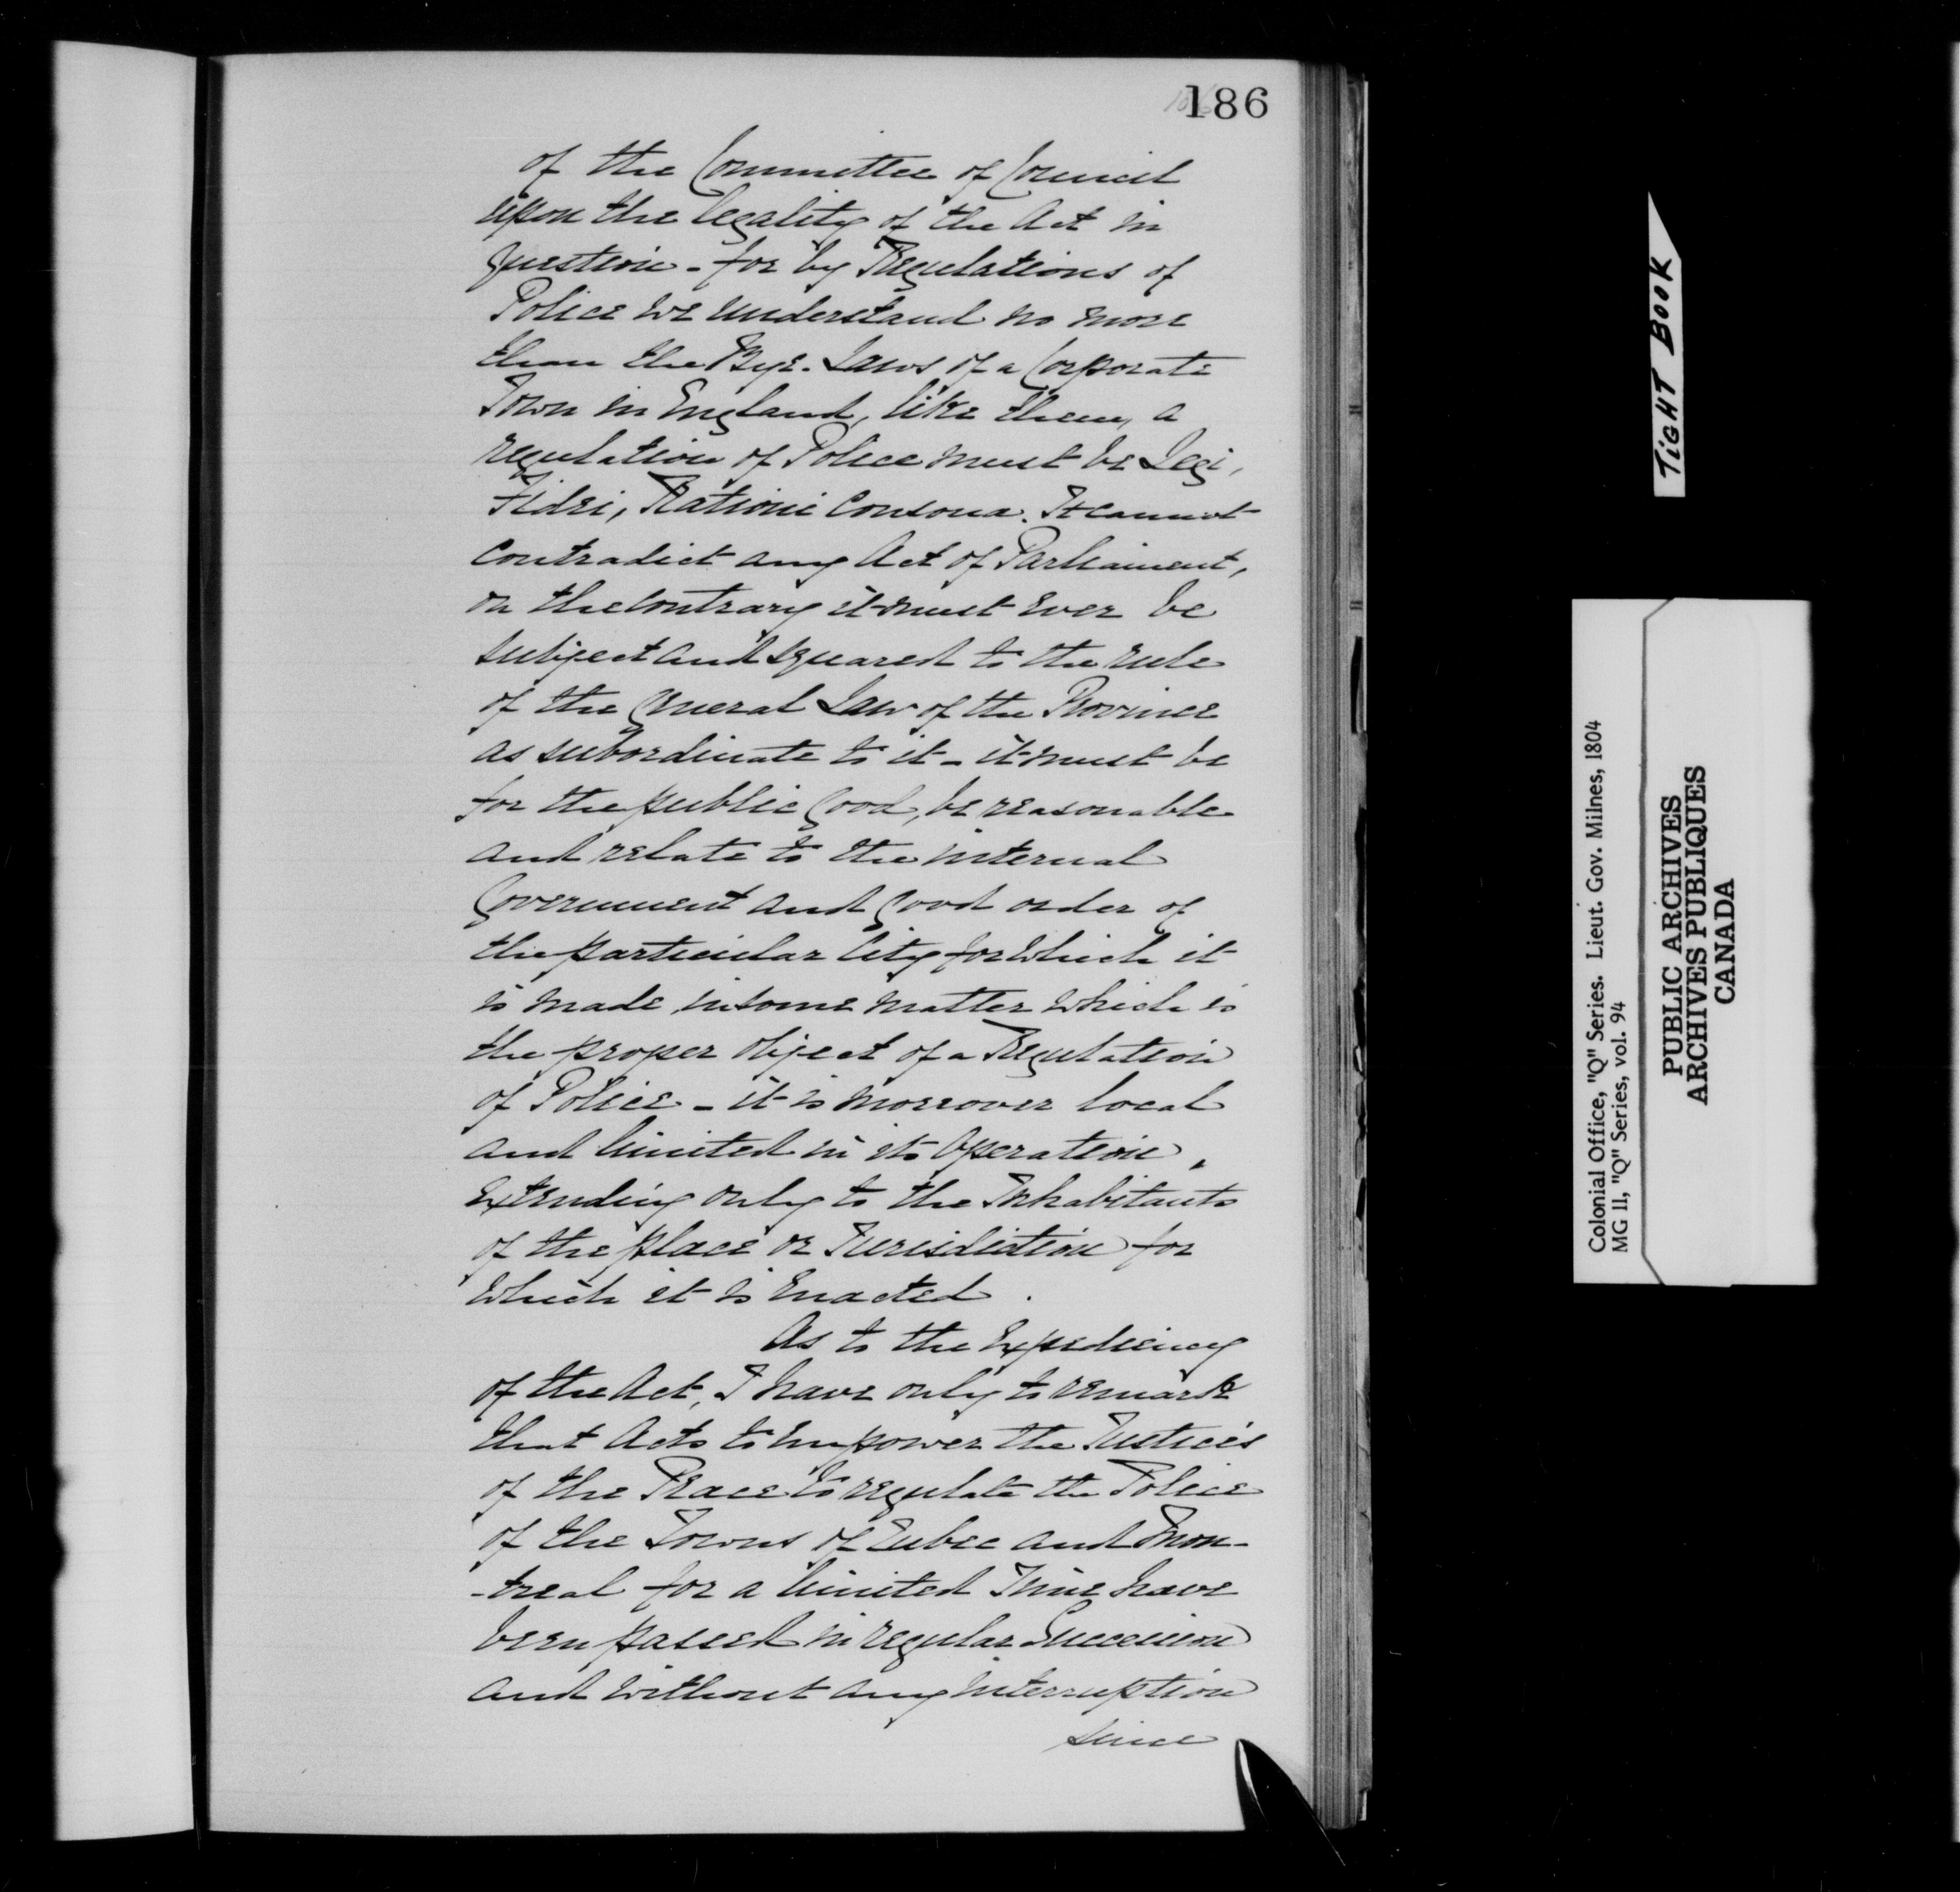 186
of the Committee of Council
upon the legality of the Act in
question - for by Regulations of
Police we understand no more
than the Bye-Laws of a Corporate
Town in England, like them, a
regulation of Police must be Legi,
Fidei, Rationi Consona. It cannot
Contradict any Act of Parliament,
on the Contrary it must ever be
subject and squared to the rule
of the General Law of the Province
as subordinate to it - it must be
for the public Good, be reasonable
and relate to the internal
Government and Good order of
the particular City for which it
is made, in some matter which is
the proper object of a Regulation
of Police - it is moreover local
and limited in its Operation,
Extending only to the Inhabitants
of the place or Jurisdiction for
which it is Enacted.
As to the Expediency
of the Act, I have only to remark
that Acts to Empower the Justices
of the Peace to regulate the Police
of the Towns of Quebec and Mon-
-treal for a limited Time have
been passed in regular Succession
and without any interruption
since
TIGHT BOOK
Colonial Office, "Q" Series. Lieut. Gov. Milnes, 1804
MG 11, "Q" Series, vol. 94
PUBLIC ARCHIVES
ARCHIVES PUBLIQUES
CANADA